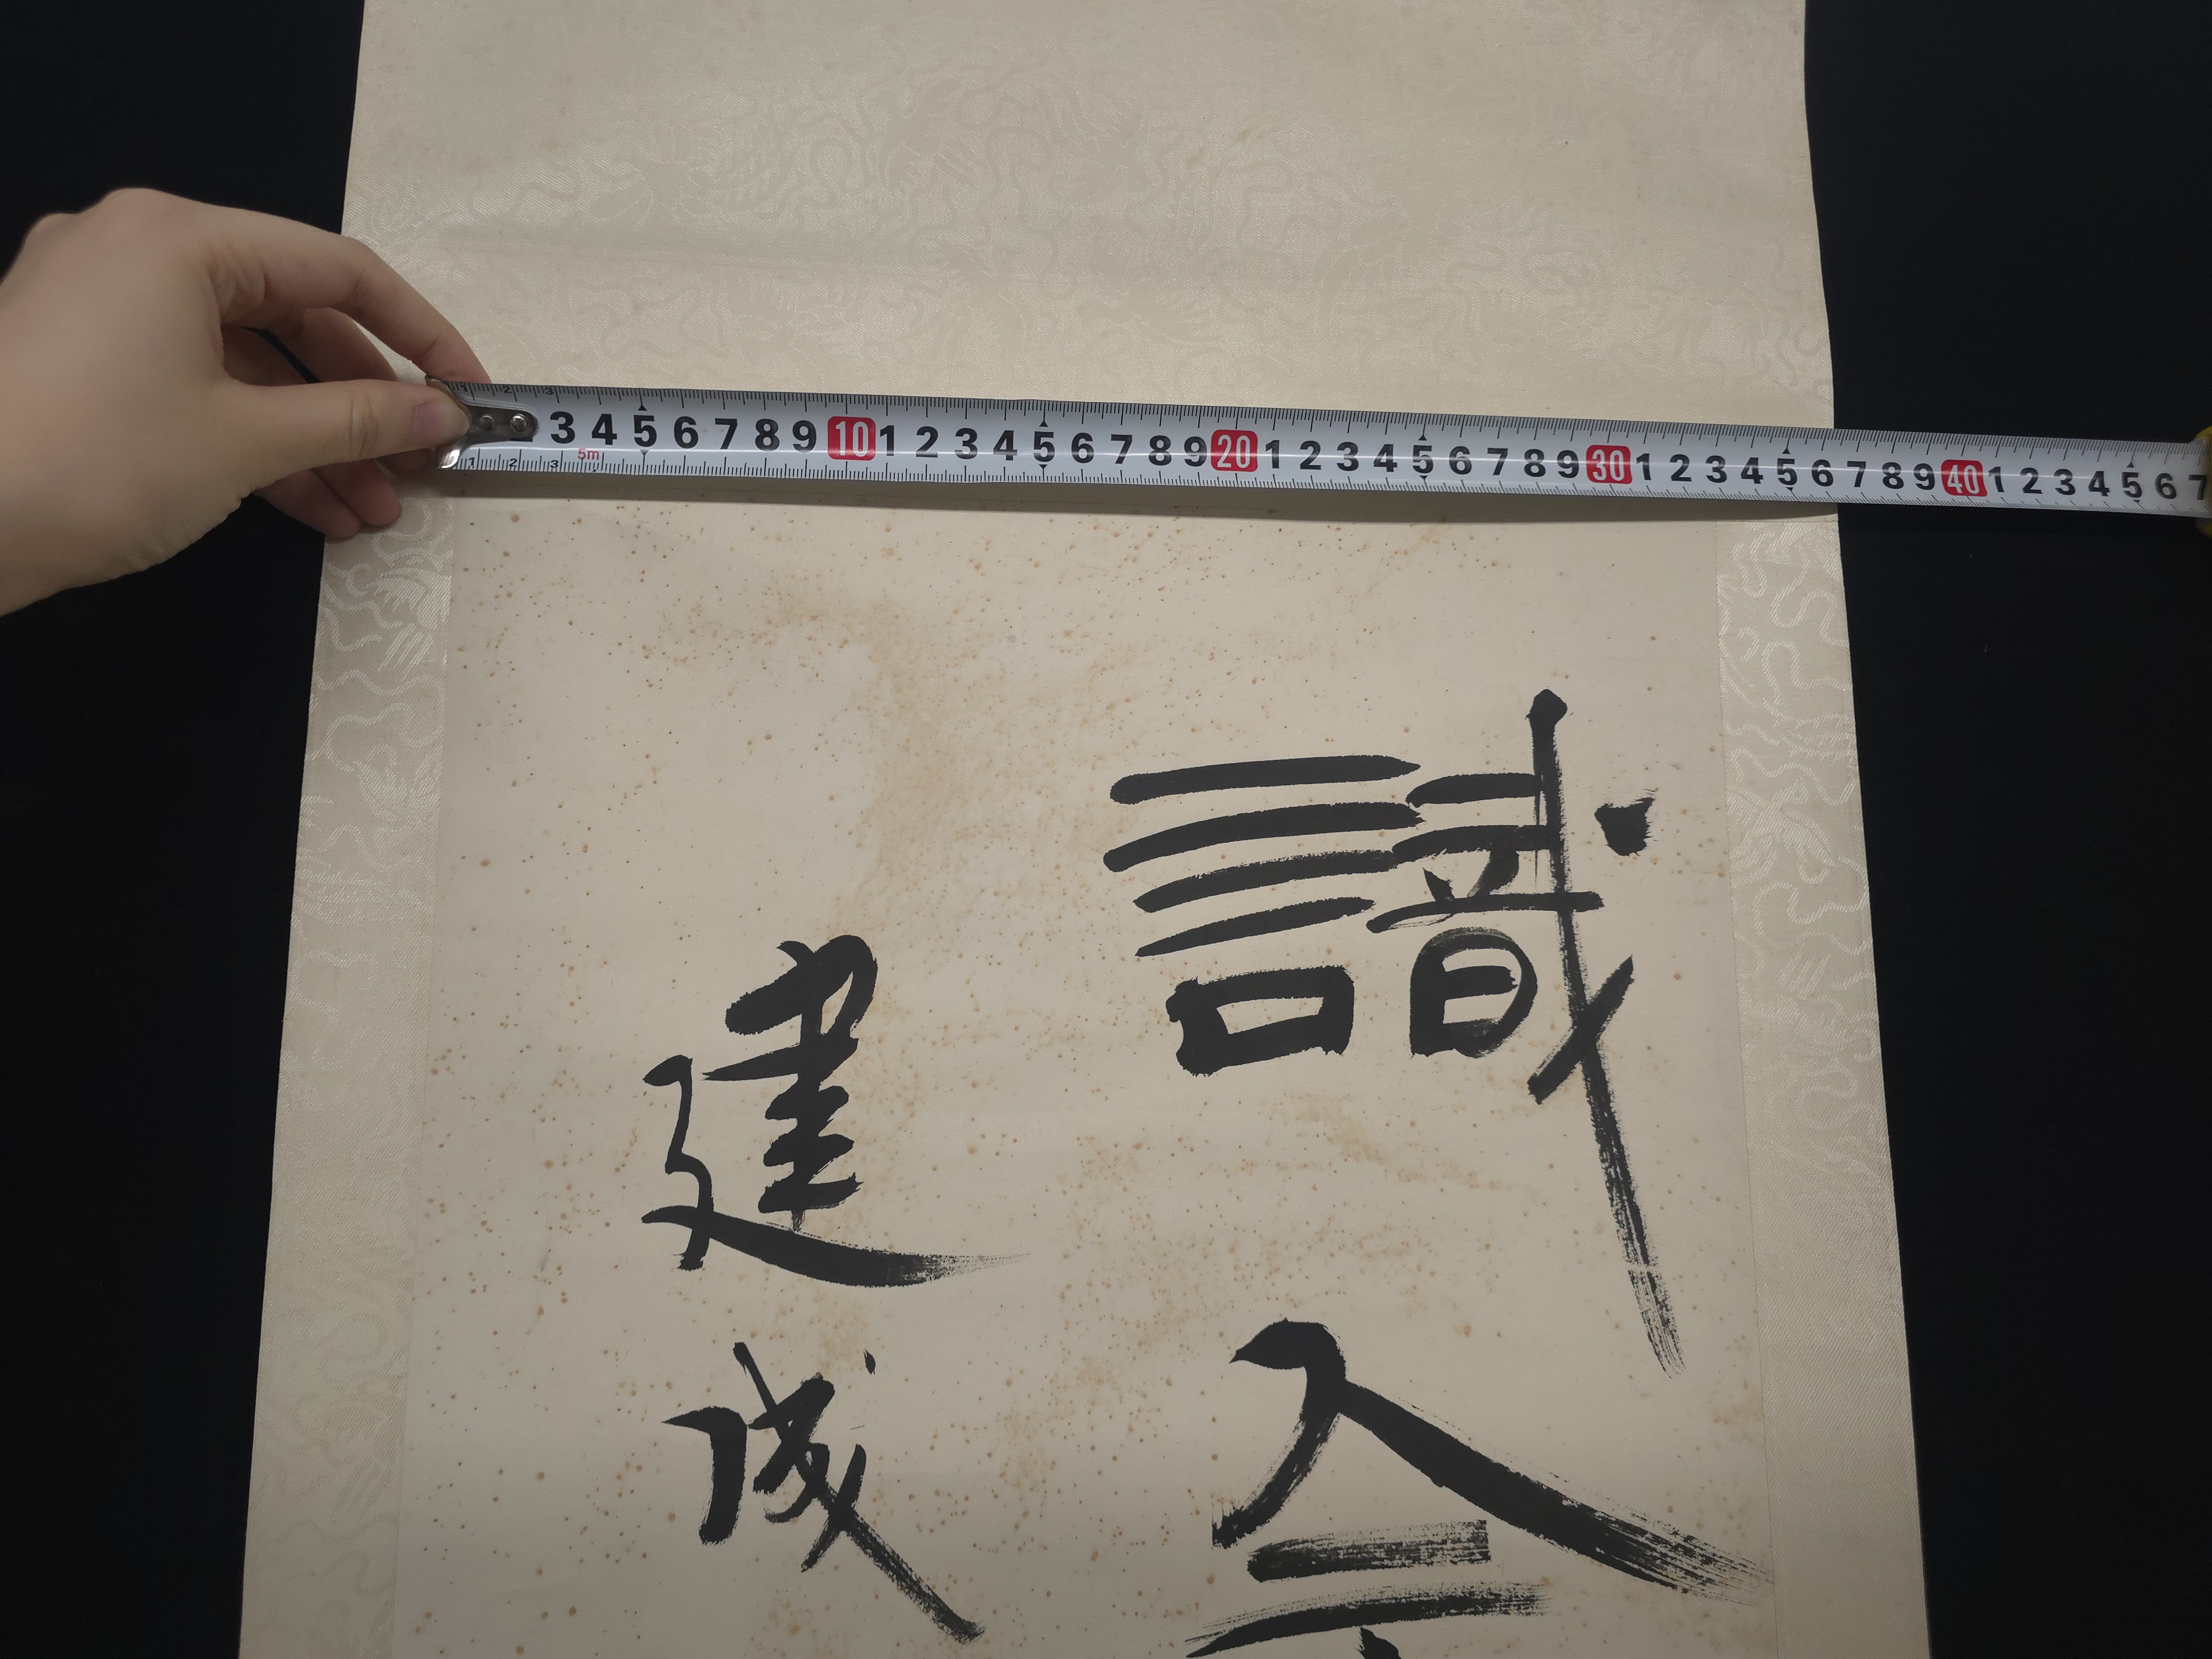 1 2 3
3 4 5 6 7 8 9 10 1 2 3 4 5 6 7 8 9 20 1 2 3 4 5 6 7 8 9 30 1 2 3 4 5 6 7 8 9 40 1 2 3 4 5 6 7
5m
1 2 3
識
建成